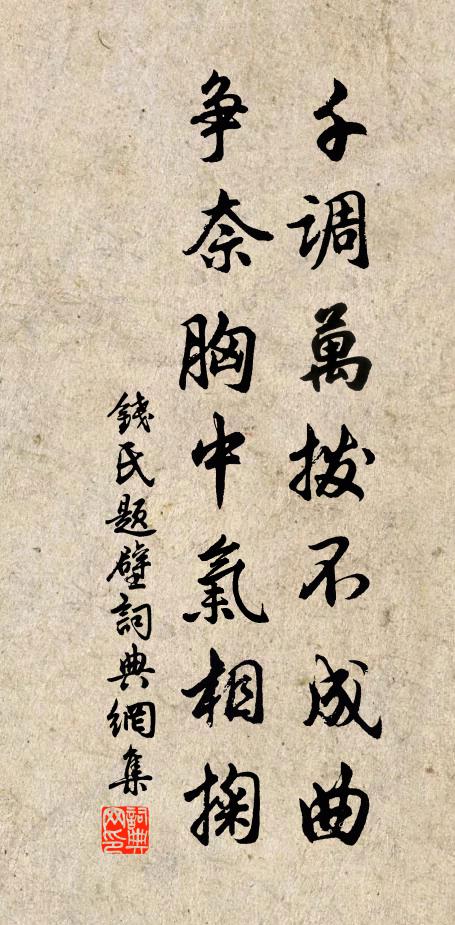 千調萬撥不成曲
争奈胸中氣相掬
錢氏題壁詞典網集
詞典网印